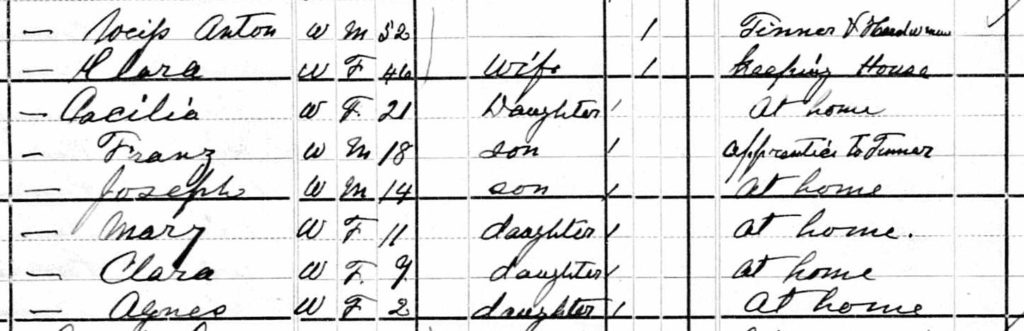 — Weiss Anton W M 52 1 Tinner & Hardware
— Klara W F 46 Wife 1 Keeping House
— Cacilia W F 21 Daughter 1 At home
— Franz W M 18 son 1 apprentice to Tinner
— Joseph W M 14 son 1 at home
— Mary W F 11 daughter 1 at home.
— Clara W F 9 daughter 1 at home
— Agnes W F 2 daughter 1 at home